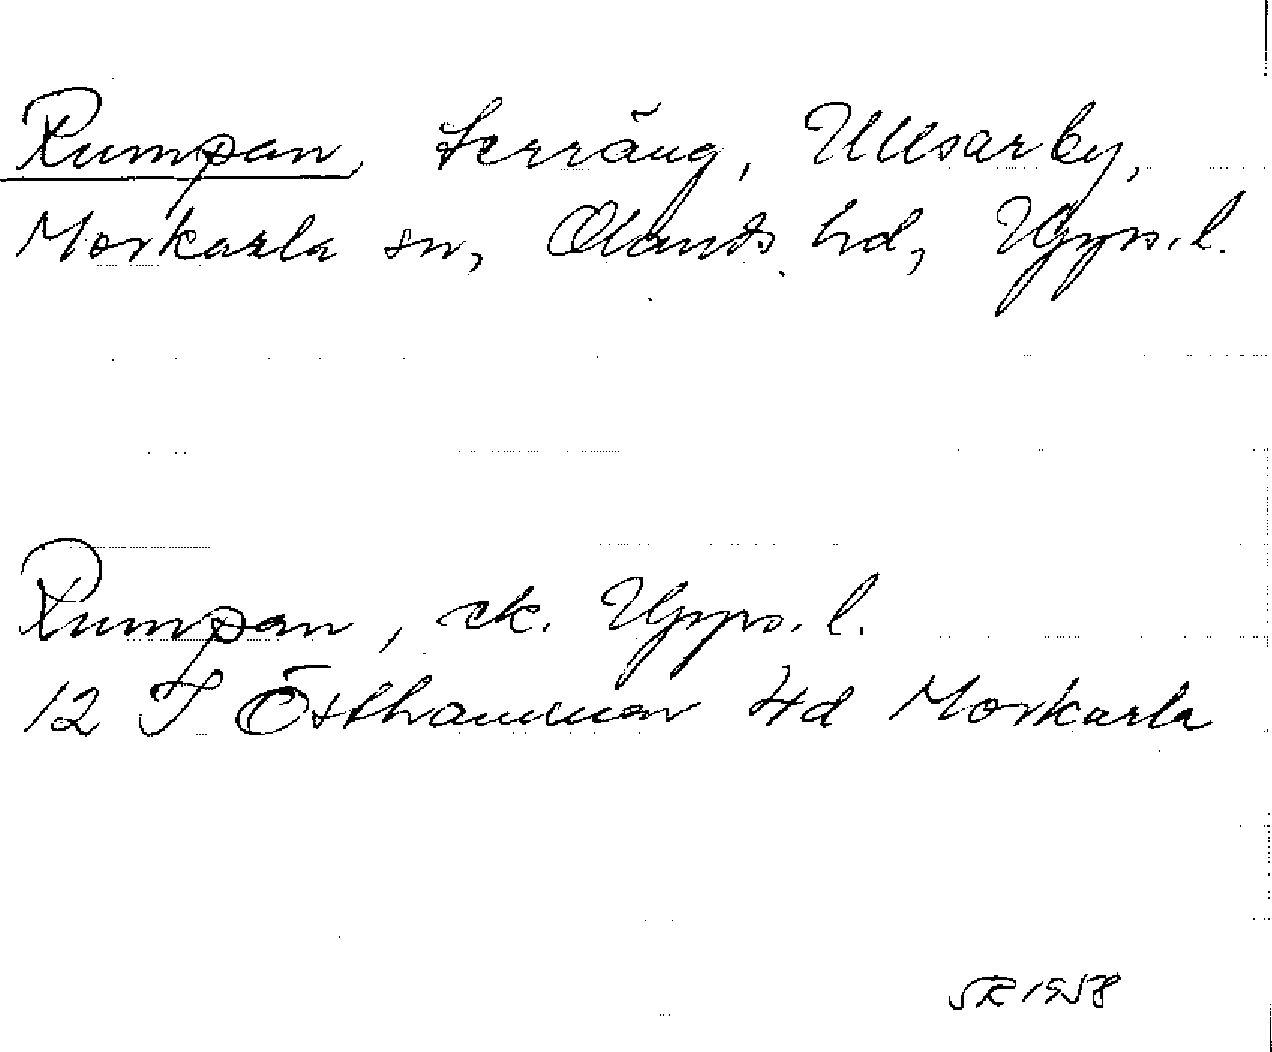 Rumpan, terräng, Ullsarby,
Morkarla sn, Olands hd, Upps. l.
Rumpan, ek. Upps. l.
12 I Östhammar 4d Morkarla
1958